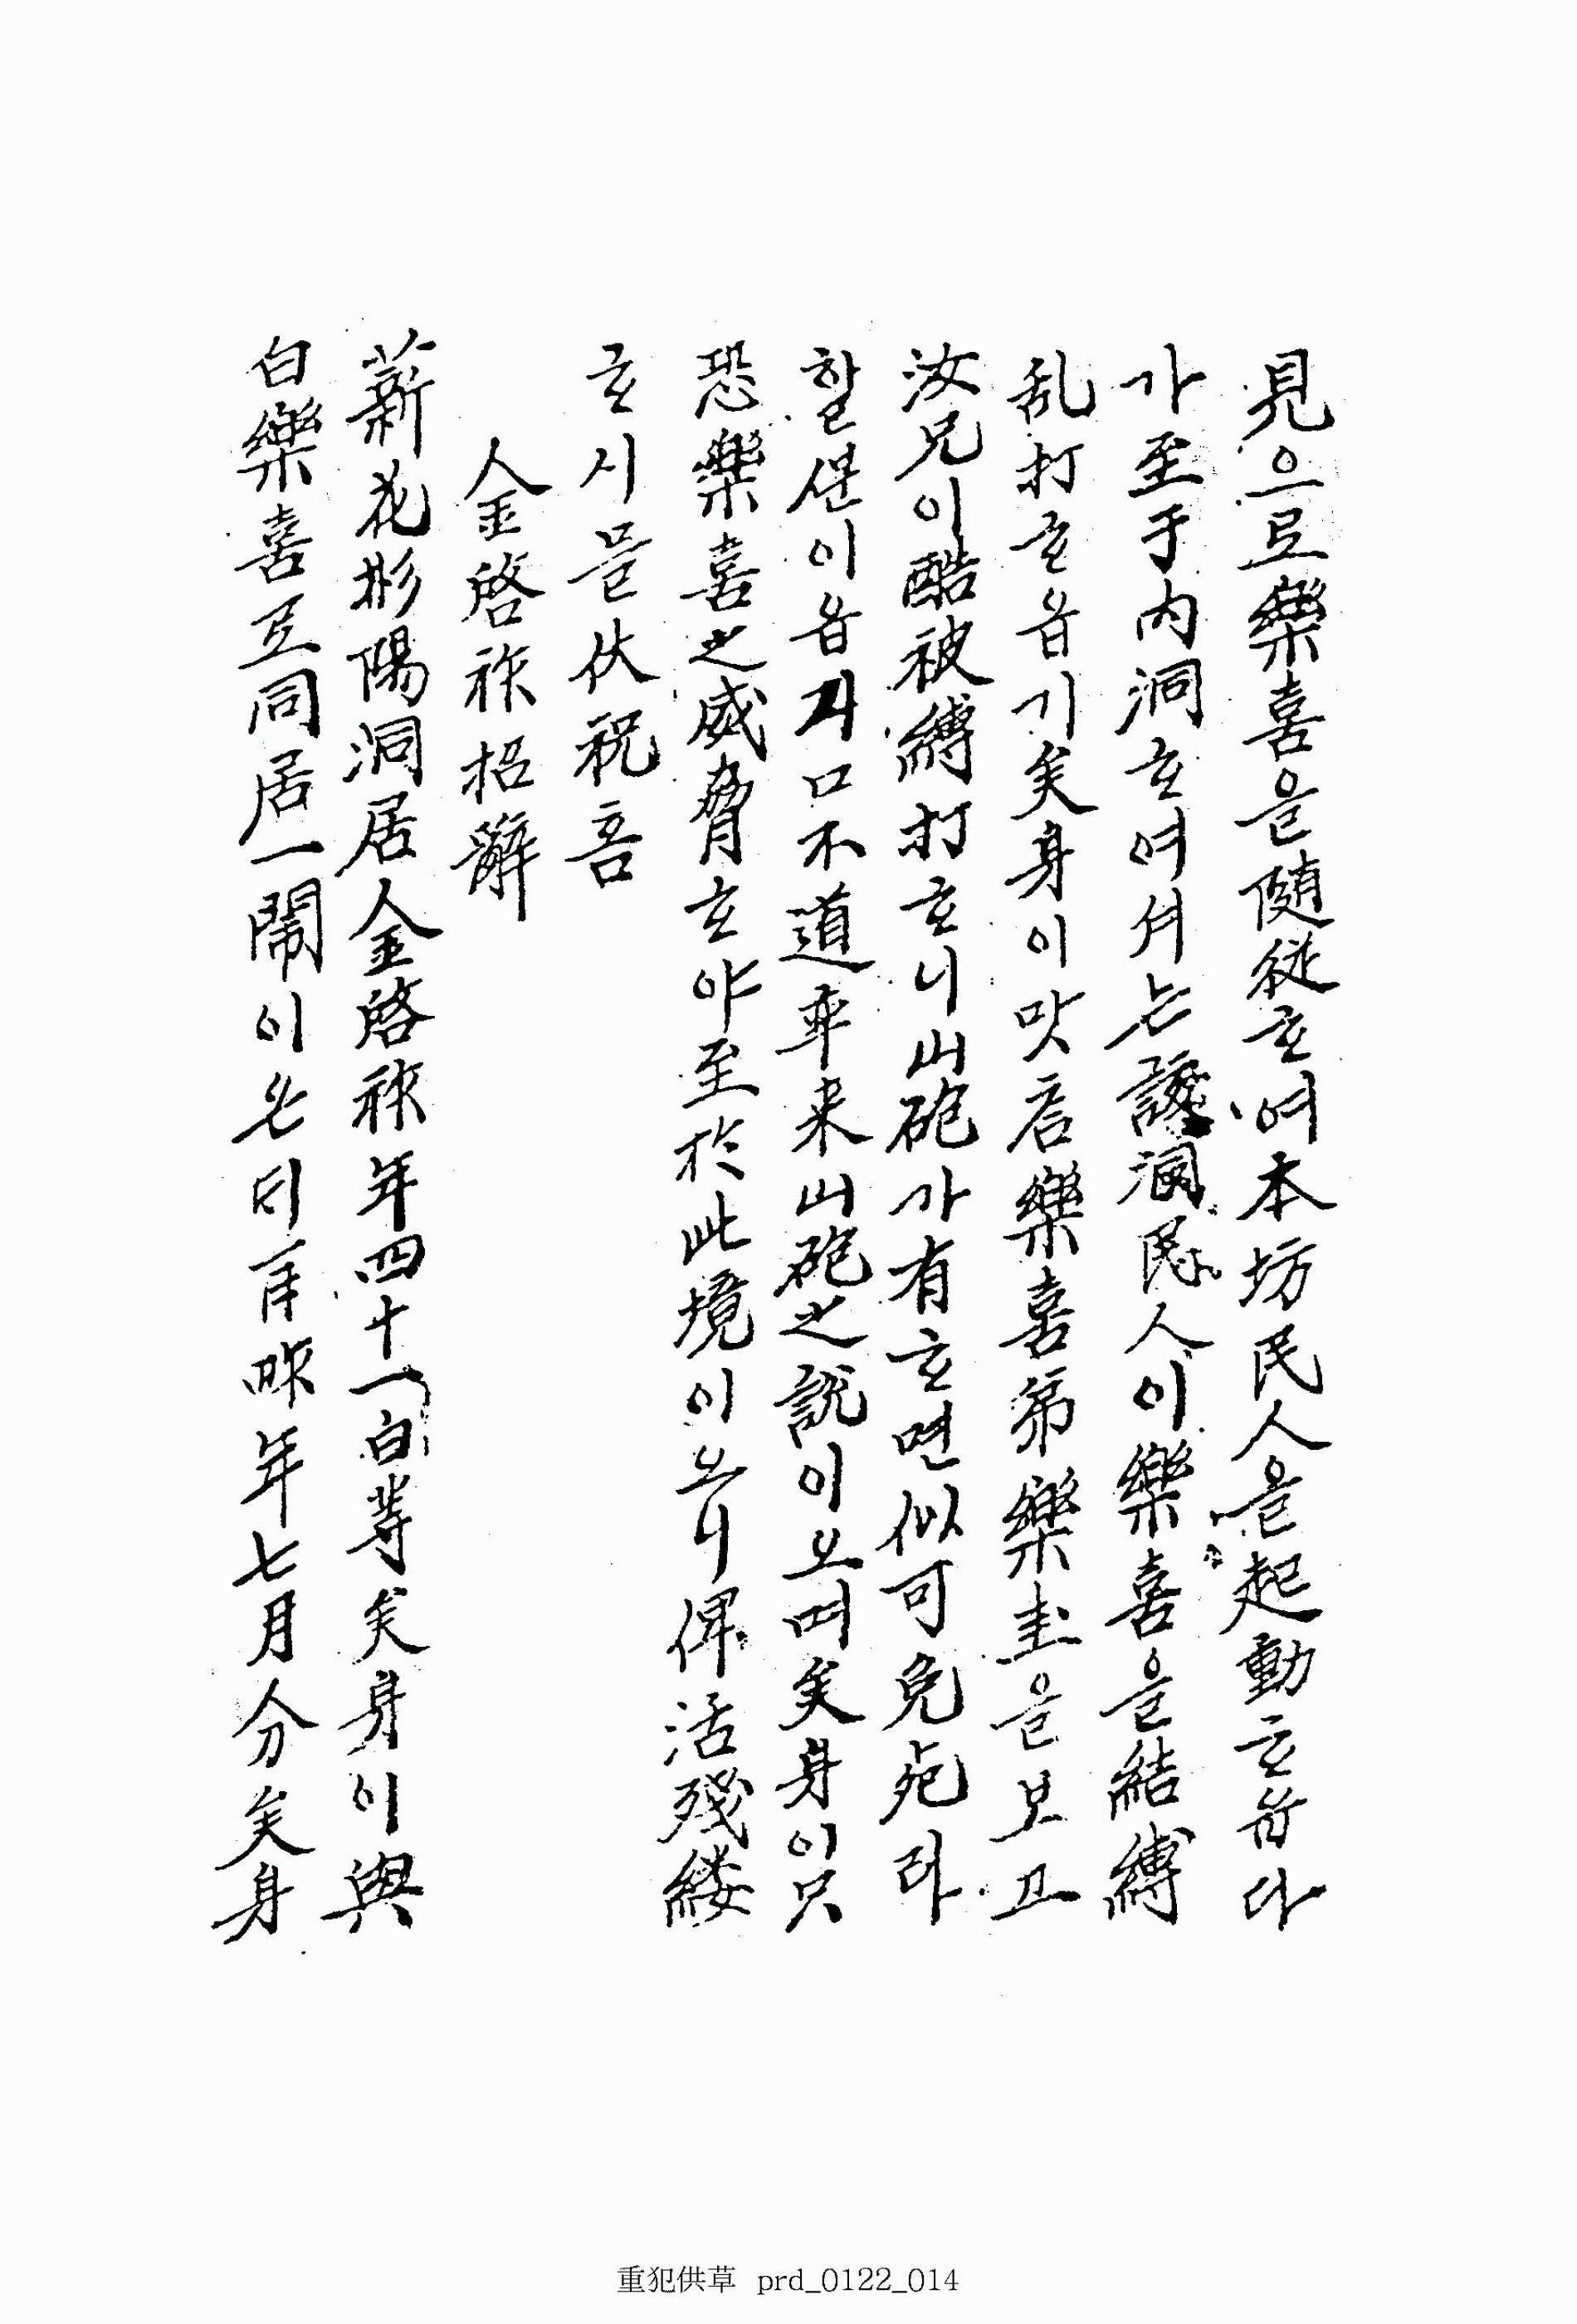 見으로樂喜을隨從ᄒᆞ여本坊民人을起動ᄒᆞ읍다
가至于內洞ᄒᆞ여셔ᄂᆞᆫ該洞民人이樂喜을結縛
亂打ᄒᆞ읍기矣身이吹唇樂喜弟樂圭을보고
汝兄이酷被縛打ᄒᆞ니山砲가有ᄒᆞ면似可免死라
할ᄲᅮᆫ이읍지口不道年来山砲之說이오며矣身이只
恐樂喜之威脅ᄒᆞ야至於此境이오니俾活殘縷
ᄒᆞ시믈伏祝音
金啓祚招辭
薪花彬陽洞居金啓祚年四十一白等矣身이與
白樂喜로同居一閈이온ᄃᆡ再昨年七月分矣身
重犯供草 prd_0122_014